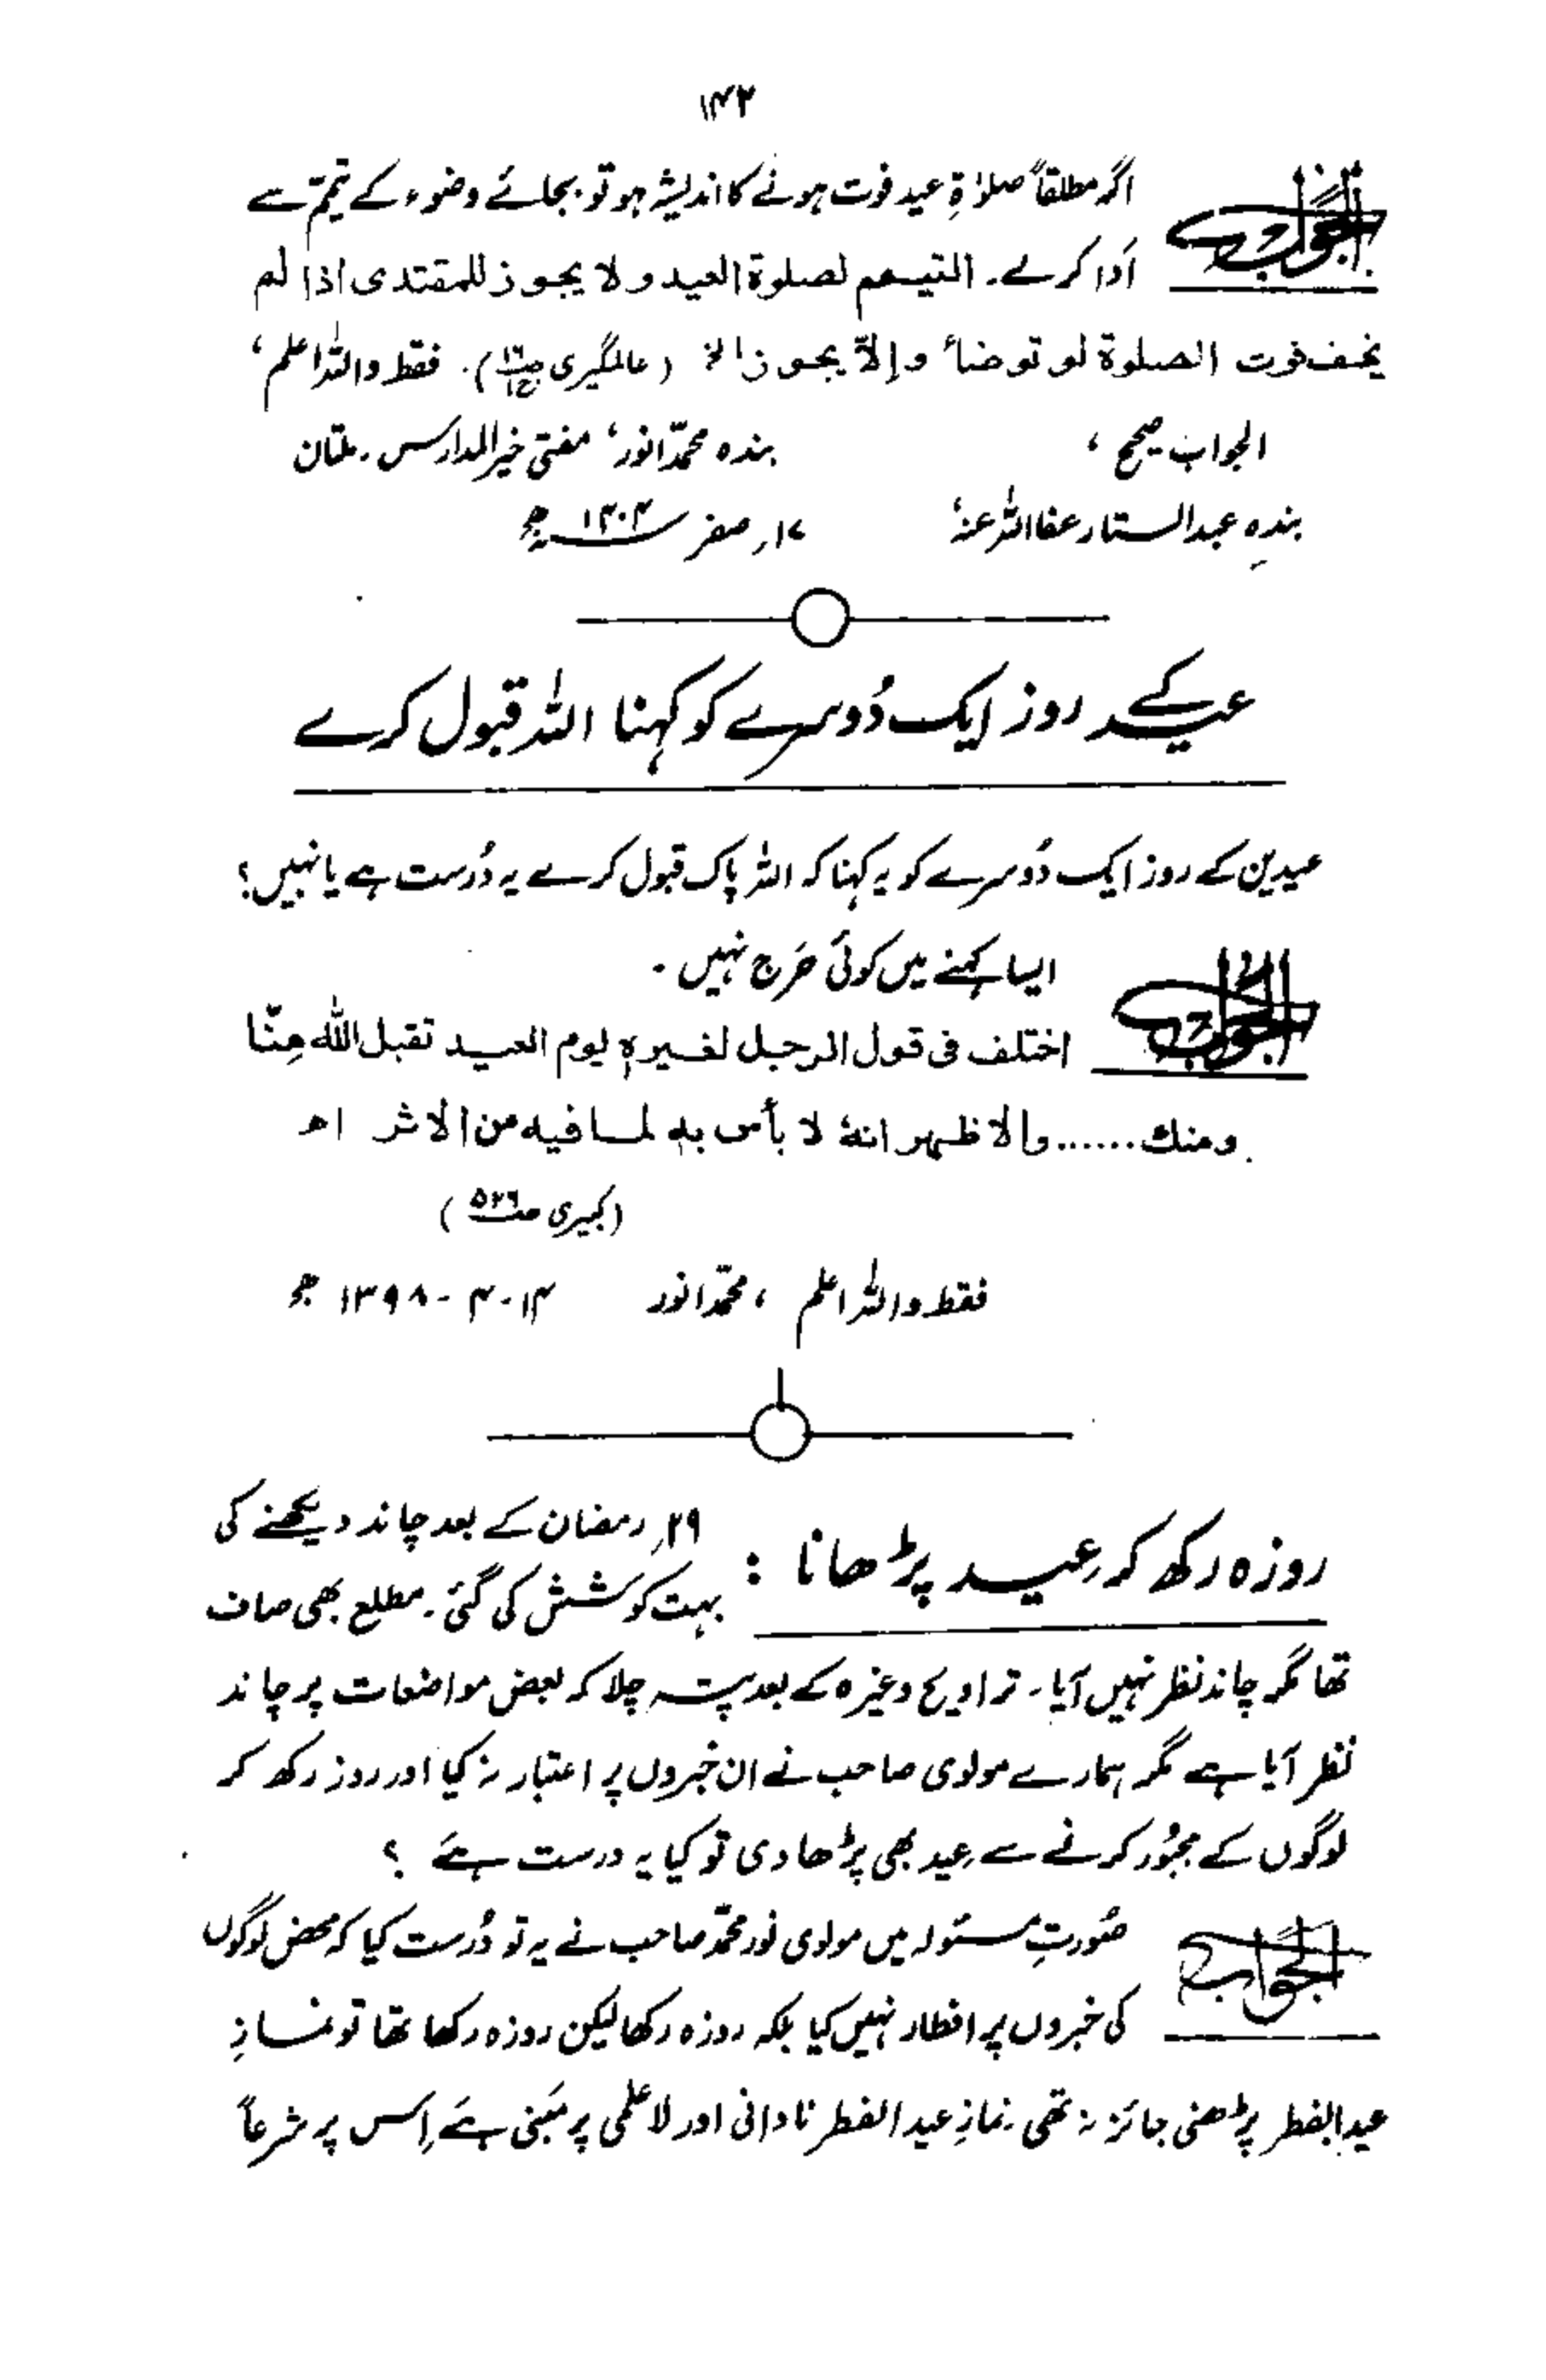 ۱۴۲
الجواب اگر مطلقاً صلوٰۃِ عید فوت ہونے کا اندیشہ ہو تو بجائے وضوء کے تیمّم سے
اَدا کرلے۔ التیمم لصلوة العید ولا یجوز للمقتدی اذا لم
یخف فوت الصلوة لو توضأ وإلاّ یجوز الخ (عالمگیری). فقط واللہ اعلم،
الجواب صحیح، بندہ محمّد انور، مفتی خیر المدارس۔ ملتان
بندہ عبد الستار عفا اللہ عنہٗ ۱۷؍ صفر ۱۴۰۳ھ
عید کے روز ایک دُوسرے کو کہنا اللہ قبول کرے
عیدین کے روز ایک دُوسرے کو یہ کہنا کہ اللہ پاک قبول کرے یہ دُرست ہے یا نہیں؟
الجواب ایسا کہنے میں کوئی حَرج نہیں۔
اختلف فی قول الرجل لغیرہٖ یوم العید تقبل اللہ مِنّا
ومنك ...... والاظہر انہٗ لا بأس بہٖ لما فیہ من الاثر اھ
(کبیری ص۵۲۶)
فقط واللہ اعلم، محمّد انور ۱۴-۴-۱۳۹۸ھ
روزہ رکھ کر عید پڑھانا : ۲۹؍ رمضان کے بعد چاند دیکھنے کی
بہت کوشش کی گئی۔ مطلع بھی صاف
تھا مگر چاند نظر نہیں آیا۔ تراویح وغیرہ کے بعد پتہ چلا کہ بعض مواضعات پر چاند
نظر آیا ہے مگر ہمارے مولوی صاحب نے ان خبروں پر اعتبار نہ کیا اور روزہ رکھ کر
لوگوں کے مجبُور کرنے سے عید بھی پڑھا دی تو کیا یہ درست ہے ؟
الجواب صُورتِ مسئولہ میں مولوی نور محمّد صاحب نے یہ تو دُرست کیا کہ محض لوگوں
کی خبروں پر افطار نہیں کیا بلکہ روزہ رکھا لیکن روزہ رکھا تھا تو نمازِ
عید الفطر پڑھنی جائز نہ تھی۔ نمازِ عید الفطر نادانی اور لاعلمی پر مَبنی ہے اِس پر شرعاً